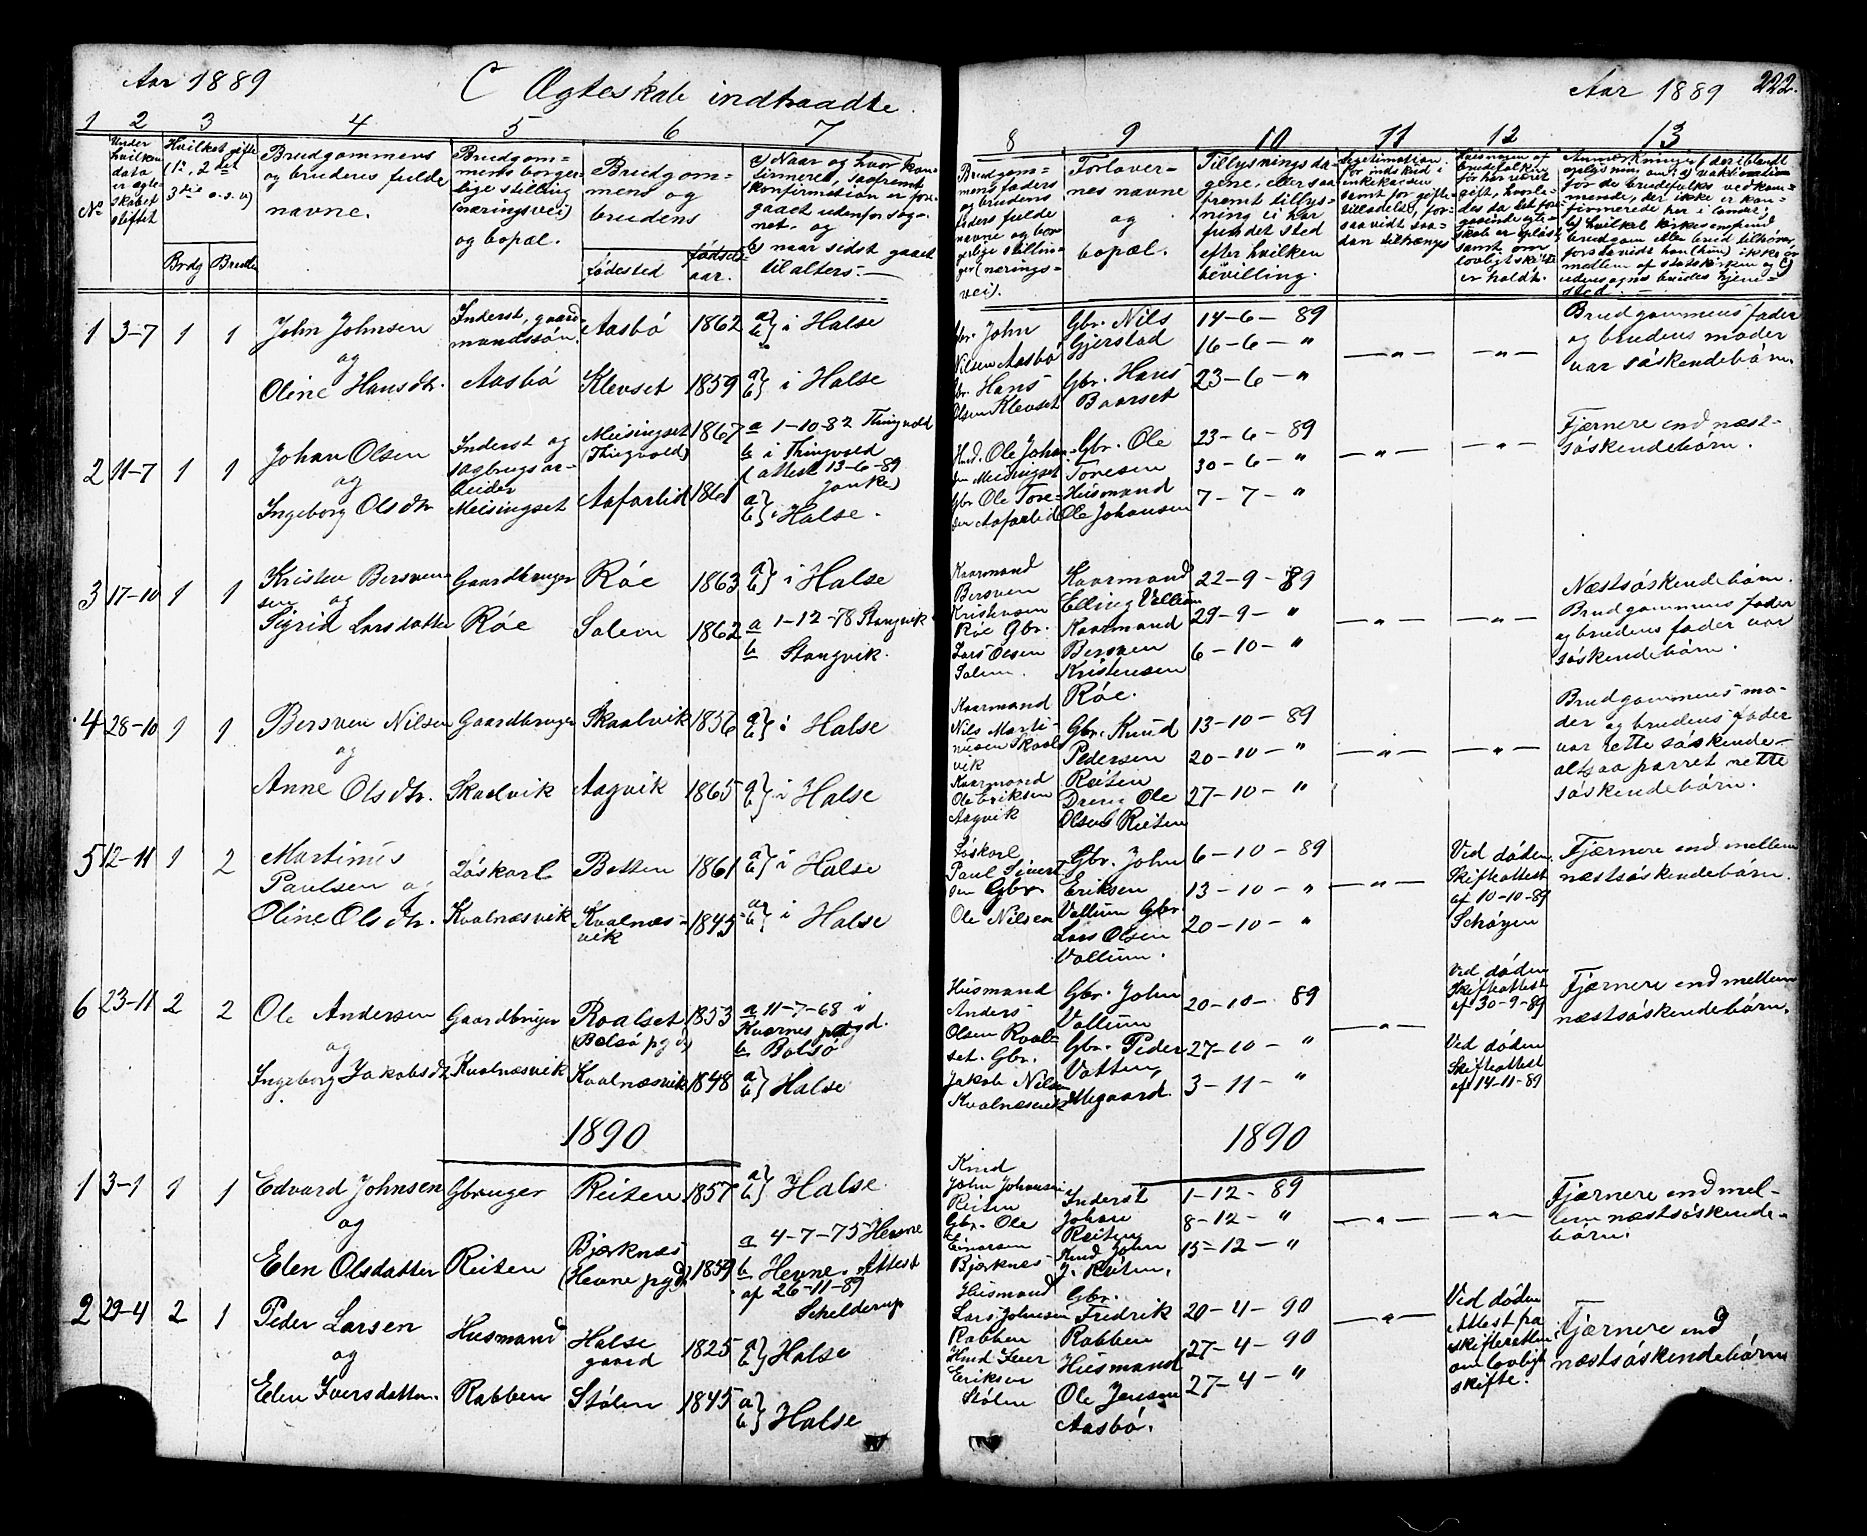 Aar 1889
C Ægteskab indtraadte.
Aar 1889
222.
1 2 3 4 5 6 7
8 9 10 11 12 13
No
Under hvilken data er ægteskabet stiftet
Hvilket gifte (1ste, 2det 3die o.s.v)
Brdg Bruden
Brudgommens og brudens fulde navne.
Brudgommens borgerlige stilling (næringsvei) og bopæl.
Brudgommens og brudens
fødested
fødselsaar.
a) Naar og hvor konfirmeret, saafremt konfirmation er foregaaet udenfor sognet, og
b) naar sidst gaaet til alters.
Brudgommens faders og brudens faders fulde navne og borgerlige stilling (næringsvei).
Forlovernes navne og bopæl.
Tillysningsdagene, eller saafremt tillysning ei har fundet sted efter hvilken bevilling.
1 3-7 1 1
John Johnsen
og
Oline Hansdtr.
Inderst, gaardmandssøn.
Aasbø
Aasbø 1862 a b} i Halse
Klevset 1859 a b} i Halse
Gbr. John Nilsen Aasbø
Gbr. Hans Olsen Klevset
Gbr. Nils Gjerstad
Gbr. Hans Baarset
14-6-89
16-6- "
23-6- "
— " —
— " —
Brudgommens fader
og brudens moder
var søskendebørn.
2 11-7 1 1
Johan Olsen
og
Ingeborg Olsdtr
Inderst og sagbrugsarbeider
Meisingset
Meisingset (Thingvold) 1867
a 1-10-82 Thingvold
b i Thingvold
(attest 13-6-89
Aafarlid 1861 a b} i Halse.
Husmd. Ole Johansen Meisingset
Gbr Ole Toresen Aafarlid
Gbr. Ole Toresen
Husmand Ole Johansen
23-6-89
30-6- "
7-7- "
— " —
— " —
Fjernere end næstsøskendebørn.
3 17-10 1 1
Kristen Bersvensen
og
Sigrid Larsdatter
Gaardbruger
Røe
Røe 1863 a b} i Halse
Solem 1862 a 1-12-78 Stangvik
b Stangvik.
Kaarmand Bersven Kristensen Røe
Gbr. Lars Olsen Solem.
Kaarmand Elling Vullum
Kaarmand Bersven Kristensen Røe.
22-9-89
29-9- "
6-10- "
— " —
— " —
Næstsøskendebørn.
Brudgommens fader
og brudens fader var
søskendebørn.
4 28-10 1 1
Bersven Nilsen
og
Anne Olsdtr.
Gaardbruger
Skaalvik
Skaalvik 1856 a b} i Halse
Aagvik 1865 a b} i Halse
Kaarmand Nils Martinusen Skaalvik
Kaarmand Ole Eriksen Aagvik
Gbr. Knud Pedersen Reiten
Dreng Ole Olsen Reiten
13-10-89
20-10- "
27-10- "
— " —
— " —
Brudgommens moder
og brudens fader
var rette søskende -
altsaa parret rette
søskendebørn.
5 12-11 1 2
Martinus
Paulsen og
Oline Olsdtr.
Løskarl
Kvalnæsvik
Botten 1861 a b} i Halse
Kvalnæsvik 1845 a b} i Halse
Løskarl Paul Sivertsen
Gbr Ole Nilsen
Gbr. John Eriksen Vullum
Gbr Lars Olsen Vullum.
6-10-89
13-10- "
20-10- "
— " —
Ved døden.
Skifteattest
af 10-10-89
Schøyen
Fjærnere end mellem
næstsøskendebørn.
6 23-11 2 2
Ole Andersen
og
Ingeborg Jakobsdtr
Gaardbruger
Kvalnæsvik
Roalset (Bolsø pgd) 1853
a 11-7-68 i Kvernes pgd.
b Bolsø
Kvalnæsvik 1848 a b} Halse
Husmand Anders Olsen Roalset.
Gbr. Jakob Nilsen Kvalnæsvik
Gbr. John Vullum
Gbr. Peder Vatten,
20-10-89
27-10- "
3-11- "
— " —
Ved døden
Skifteattest
af 30-9-89
Ved døden
Skifteattest
af 14-11-89
Fjærnere end mellem
næstsøskendebørn.
1890
1890
1 3-1 1 1
Edvard Johnsen
og
Elen Olsdatter
Gbruger
Reiten
Reiten 1857 a b} Halse
Bjerknes (Hevne pgd) 1859
a 4-7-75 Hevne
b Hevne. Attest
af 26-11-89
Schelderup
John Johnsen Reiten
Gbr. Ole Einarsen Bjerknes
Inderst Johan Reiten
John J. Reiten.
1-12-89
8-12- "
15-12- "
— " —
— " —
Fjærnere end mellem
næstsøskendebørn.
2 29-4 2 1
Peder Larsen
og
Elen Iversdatter
Husmand
Rabben
Halse gaard 1825 a b} Halse
Stølen 1845 a b} Halse
Husmand Lars Johnsen Rabben
Iver Eriksen Stølen
Gbr. Fredrik Rabben
Husmand Ole Jensen Aasbø.
20-4-90
27-4-90
27-4- "
— " —
Ved døden
Attest fra
skifteretten
om lovligt
skifte.
Fjærnere end
næstsøskendebørn